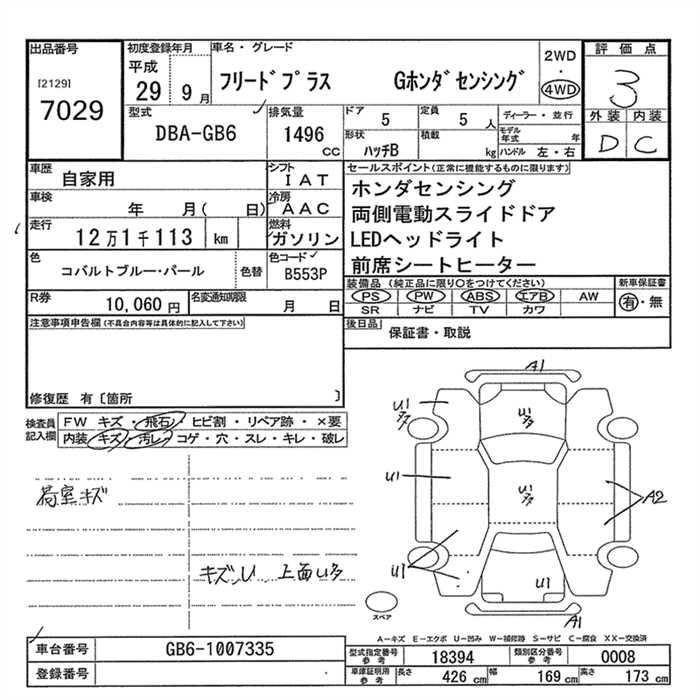 出品番号
[2129]
7029
初度登録年月
平成
29 9 月
車名・グレード
フリードプラス Gホンダセンシング
2WD
・
4WD
評価点
3
外装 内装
D C
型式
DBA-GB6
排気量
1496
CC
ドア
5
定員
5 人
形状
ハッチB
積載
kg
ディーラー・並行
モデル年式 年
ハンドル 左・右
車歴
自家用
シフト
IAT
車検
年 月( 日)
冷房
AAC
走行
12万1千113 km
燃料
ガソリン
色
コバルトブルー・パール
色替
色コード
B553P
R券
10,060 円
名変通知期限
月 日
セールスポイント(正常に機能するものに限ります)
ホンダセンシング
両側電動スライドドア
LEDヘッドライト
前席シートヒーター
装備品(純正品に限り○をつけてください)
PS PW ABS エアB AW
SR ナビ TV カワ
新車保証書
有・無
後日品
保証書・取説
注意事項申告欄(不具合内容等は具体的に記入して下さい)
修復歴 有〔箇所 〕
検査員
記入欄
FW キズ・飛石・ヒビ割・リペア跡・×要
内装 キズ・汚レ・コゲ・穴・スレ・キレ・破レ
荷室キズ
キズ,U 上面U多
A1
U1
タタ
U1
タタ
U1
U1
タタ
A2
U1
U1
A1
スペア
A-キズ E-エクボ U-凹み W-補修跡 S-サビ C-腐食 XX-交換済
車台番号
GB6-1007335
登録番号
型式指定番号
参考
18394
類別区分番号
参考
0008
車庫証明用
参考
長さ
426 cm
幅
169 cm
高さ
173 cm